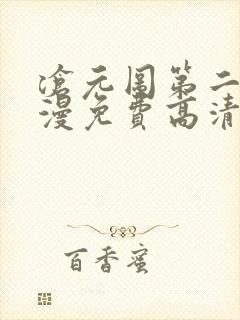 滄元图第二
漫免费高清
百香蜜